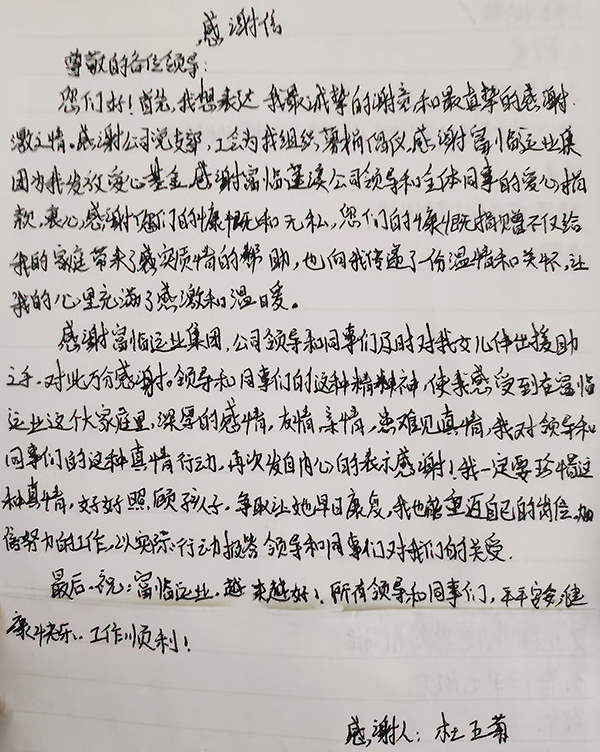 感谢信
尊敬的各位领导:
您们好!首先,我想表达我最诚挚的谢意和最真挚的感谢
激之情。感谢公司党支部,工会为我组织募捐倡仪,感谢富临运业集
团为我发放爱心基金,感谢富临蓬溪公司领导和全体同事的爱心捐
款,衷心感谢你们的慷慨和无私,您们的慷慨捐赠不仅给
我的家庭带来了实质情的帮助,也向我传递了一份温情和关怀,让
我的心里充满了感激和温暖。
感谢富临运业集团,公司领导和同事们及时对我女儿伸出援助
之手。对此万分感谢。领导和同事们的这种精神,使我感受到在富临
运业这个大家庭里,深厚的感情,友情,亲情,患难见真情,我对领导和
同事们的这种真情行动,再次发自内心的表示感谢!我一定要珍惜这
种真情,好好照顾孩子,争取让她早日康复,我也能重返自己的岗位,加
倍努力的工作,以实际行动报答领导和同事们对我们的关爱.
最后祝:富临运业,越来越好!所有领导和同事们,平平安安,健
康快乐、工作顺利!
感谢人:杜玉菊